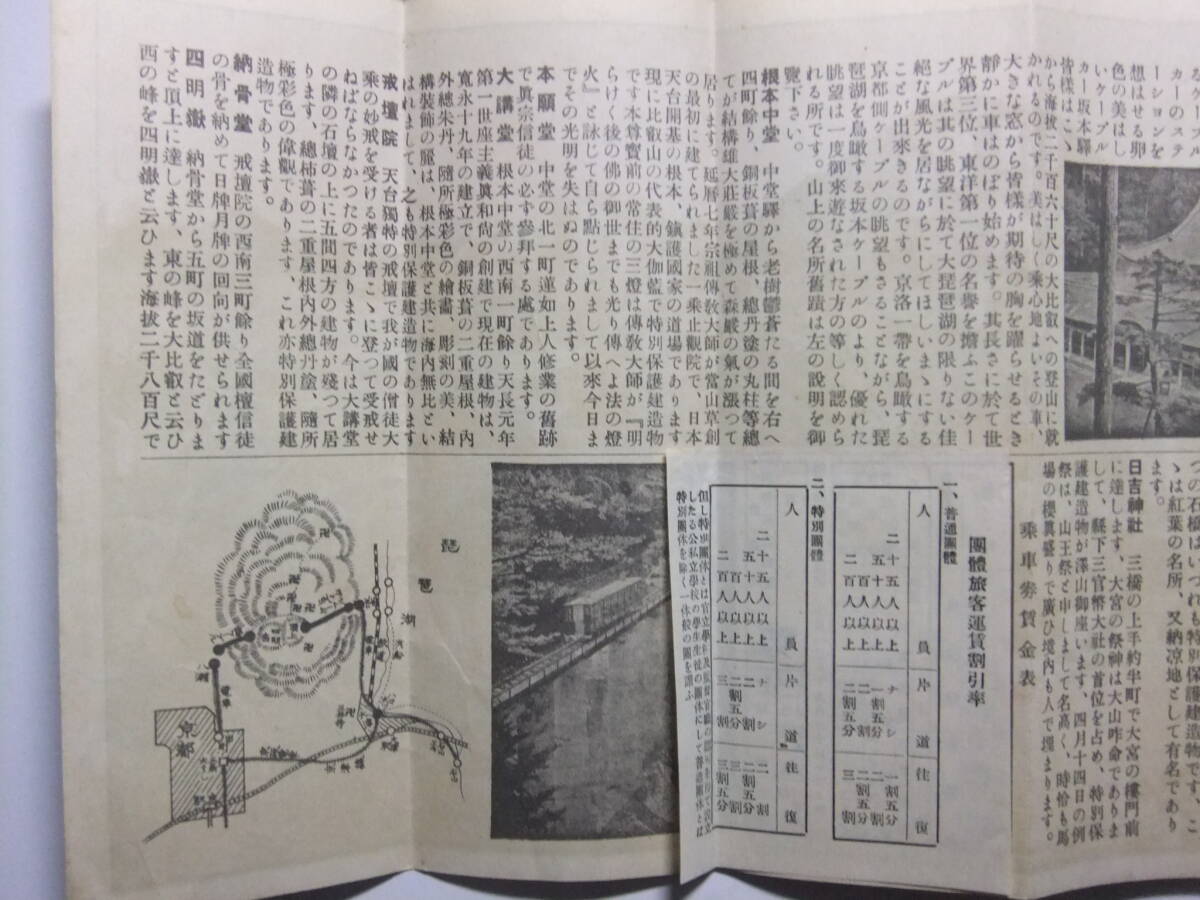 カーのステ
ーションを
想はせる卵
色の美はし
いケーブル
カー坂本驛
皆樣はこゝ
から海拔二千百六十尺の大比叡への登山に就
かれるのです。美はしく乘心地よいその車、
大きな窓から皆樣が期待の胸を躍らせるとき
靜かに車はのぼり始めます。其長さに於て世
界第三位、東洋第一位の名譽を擔ふこのケー
ブルは其の眺望に於て大琵琶湖の限りない佳
絕な風光を居ながらにしてほしいまゝにする
ことが出來きるのです。京洛一帶を鳥瞰する
京都側ケーブルの眺望もさることながら、琵
琶湖を鳥瞰する坂本ケーブルのより、優れた
眺望は一度御來遊なされた方の等しく認めら
れる所です。山上の名所舊蹟は左の說明を御
覽下さい。
根本中堂 中堂驛から老樹鬱蒼たる間を右へ
四町餘り、銅板葺の屋根、總丹塗の丸柱等總
てが結構雄大莊嚴を極めて森嚴の氣が漲つて
居ります。延曆七年宗祖傳敎大師が當山草創
の最初に建てられました一乘止觀院で、日本
天台開基の根本、鎭護國家の道場であります
現に比叡山の代表的大伽藍で特別保護建造物
です本尊寶前の常住の三燈は傳敎大師が『明
らけく後の佛の御世までも光り傳へよ法の燈
火』と詠じて自ら點じられまして以來今日ま
でその光明を失はぬのであります。
本願堂 中堂の北一町蓮如上人修業の舊跡
で眞宗信徒の必ず參拜する處であります。
大講堂 根本中堂の西南一町餘り天長元年
第一世座主義眞和尚の創建で現在の建物は、
寬永十九年の建立で、銅板葺の二重屋根、內
外總朱丹、隨所極彩色の繪畵、彫刻の美、結
構裝飾の麗は、根本中堂と共に海內無比とい
はれまして、之も特別保護建造物であります
戒壇院 天台獨特の戒壇で我が國の僧徒大
乘の妙戒を受ける者は皆こゝに登つて受戒せ
ねばならなかつたのであります。今は大講堂
の隣の石壇の上に五間四方の建物が殘つて居
ります、總柿葺の二重屋根內外總丹塗、隨所
極彩色の偉觀であります、これ亦特別保護建
造物であります。
納骨堂 戒壇院の西南三町餘り全國檀信徒
の骨を納めて日牌月牌の回向が供せられます
四明嶽 納骨堂から五町の坂道をたどりま
すと頂上に達します、東の峰を大比叡と云ひ
西の峰を四明嶽と云ひます海拔二千八百尺で
つの石橋はいづれも特別保護建造物です、こ
ゝは紅葉の名所、又納凉地として有名であり
ます。
日吉神社 三橋の上手約半町で大宮の樓門前
に達します、大宮の祭神は大山咋命でありま
して、縣下三官幣大社の首位を占め、特別保
護建造物が澤山御座います、四月十四日の例
祭は、山王祭と申しまして名高く、時恰も馬
場の櫻眞盛りで廣ひ境內も人で埋まります。
乘車券賃金表
團體旅客運賃割引率
一、普通團體
人員 片道 往復
二十五人以上 ナシ 一割五分
五十人以上 一割五分 二割
百人以上 二割 二割五分
二百人以上 二割五分 三割
二、特別團體
人員 片道 往復
二十五人以上 ナシ 二割
五十人以上 二割五分 二割五分
百人以上 二割五分 三割
二百人以上 三割 三割五分
琵琶湖
京都
八瀨
電車